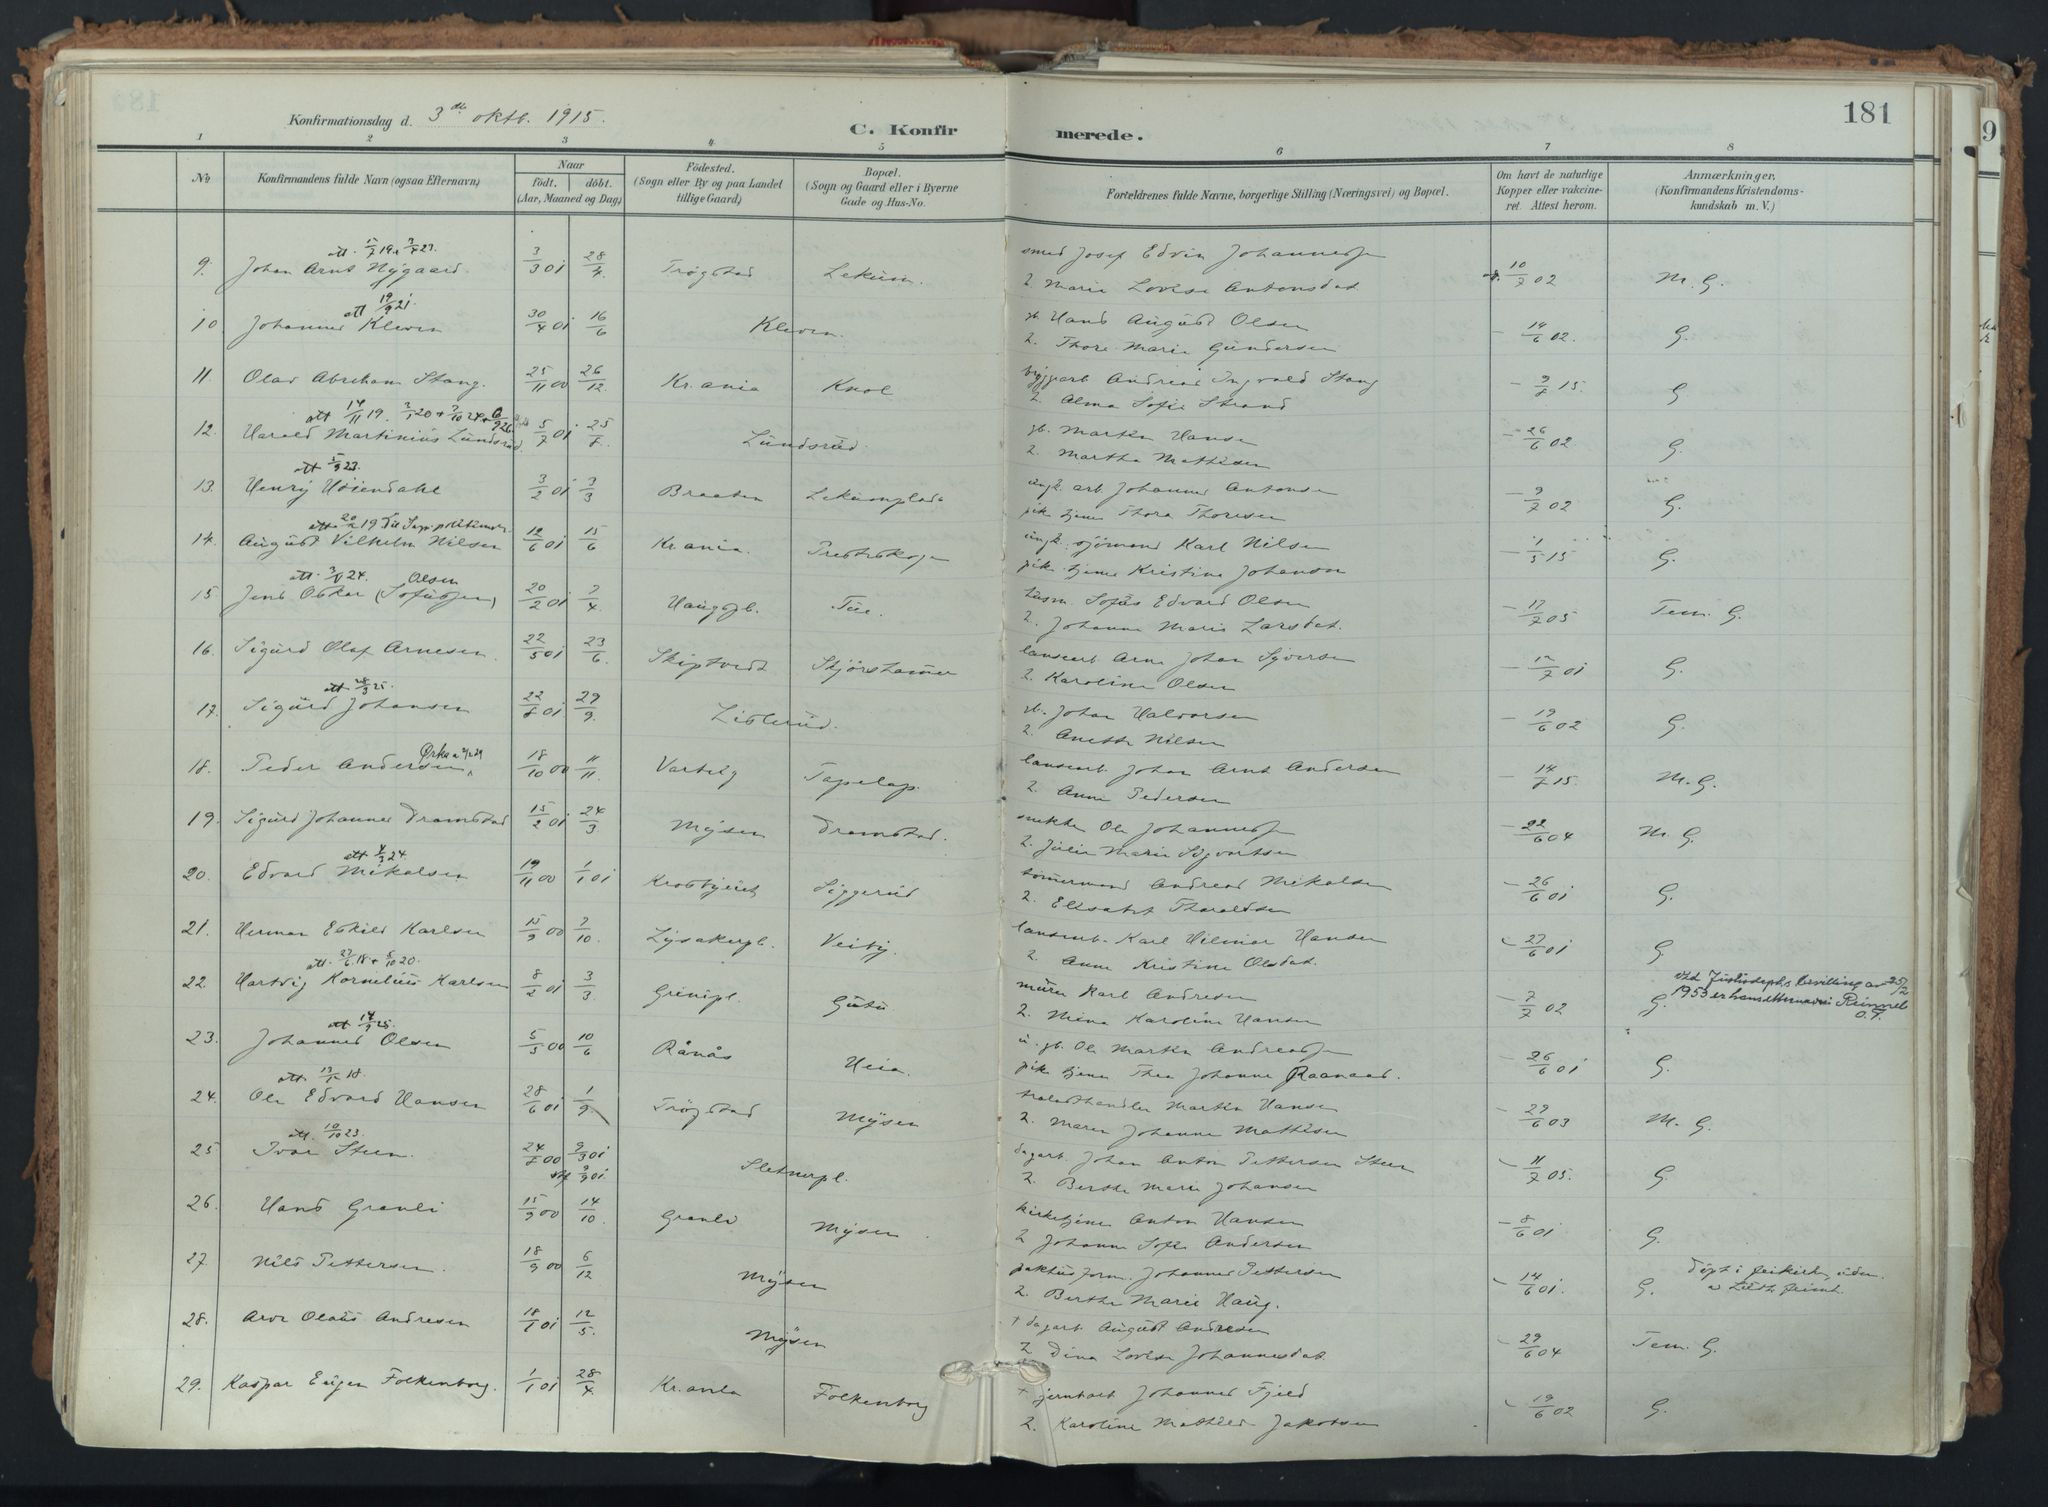 181
Konfirmationsdag d. 3die oktb. 1915.
C. Konfirmerede.
1 2 3 4 5 6 7 8
No
Konfirmandens fulde Navn (ogsaa Efternavn)
Naar
födt. döbt.
(Aar, Maaned og Dag)
Födested.
(Sogn eller By og paa Landet
tillige Gaard)
Bopæl.
(Sogn og Gaard eller i Byerne
Gade og Hus-No.
Forældrenes fulde Navne, borgerlige Stilling (Næringsvei) og Bopæl.
Om havt de naturlige
Kopper eller vakcine-
ret. Attest herom.
Anmærkninger,
(Konfirmandens Kristendoms-
kundskab m. V.)
9. Johan Arnt Nygaard. 3/3 01 28/4 Trøgstad Lekum. smed Josef Edvin Johannessen
2. Marie Lovise Antonsdat. 10/7 02 M. G.
att 19/9 21
10. Johannes Kleven 30/4 01 16/6 Kleven. gb. Hans August Olsen
2. Thore Marie Gundersen - 14/6 02. G.
11. Olav Abraham Stang. 25/11 00 26/12 Kr.ania Knol byggarb Andreas Ingvald Stang
2. Alma Sofie Strand 15. G
12. Harald Martinius Lundsrud 5/7 01 25/8 Lundsrud. gb. Martin Hansen
2. Martha Mathisen - 26/6 02 G.
att 5/9 23.
13. Henry Høiendahl 3/2 01 3/3 Braaten Lekumplads ungk. arb. Johannes Antonsen
pik. tjene Thora Thoresen - 9/7 02 G.
14. August Vilhelm Nilsen 12/6 01 15/6 Kr.ania. Presteskogen ungk. sjømand Karl Nilsen
pik. tjene Kristine Johansen - 1/5 15 G.
Olsen
15. Jens Oskar (Sofussen) 20/2 01 7/4 Haugspl. Tue. husm. Sofus Edvard Olsen
2. Johanne Marie Larsdat. - 17/7 05 Tem. G.
16. Sigurd Olaf Arnesen. 22/5 01 23/6 Skiptvedt Stjørshammer landarb Arne Johan Syversen
2. Karoline Olsen - 12/7 01 G.
att 28/3 25.
17. Sigurd Johansen 22/8 01 29/9. Lislerud. gb. Johan Halvorsen
2. Anette Nilsen - 19/6 02 G.
18. Peder Andersen 18/10 00 11/11. Varteig Tapelap. landarb. Johan Arnt Andersen
2. Anne Pedersen - 14/8 15. M. G.
19. Sigurd Johannes Dramstad 15/2 01 24/3 Mysen Dramstad. snekker Ole Johannessen
2. Julie Marie Sigvartsen - 22/6 04 M. G.
att 4/3 24
20. Edvard Mikalsen 19/11 00 1/1 01 Krosbyeiet Siggerud tømmermand Andreas Mikalsen
2. Elisabet Tharaldsen - 26/6 01 G.
21. Herman Eskild Karlsen 15/9 00 7/10. Lysakerpl. Veiby. landarb. Karl Hilmar Hansen
2. Anne Kristine Olsdat. - 27/6 01 G.
att. 27/6 18 + 5/10 20
22. Hartvig Kornelius Karlsen 8/2 01 3/3. Grinipl. Gutu murer Karl Andresen
2. Mina Karoline Hansen - 7/7 02 G. ved Justisdepts bevilling av 25/2
1953 er hans etternavn Rimmel
O.T.
att 14/9 25.
23. Johannes Olsen 5/5 00 10/6 Rånås Heia. u. gb. Ole Martin Andreassen
pik tjene Thea Johanne Raanaas. - 26/6 01 G.
24. Ole Edvard Hansen 28/6 01 1/9. Trøgstad Mysen trælasthandler Martin Hansen
2. Maren Johanne Mathisen - 29/6 03 M. G.
att. 10/10 23.
25 Ivar Steen. 24/8 00 9/3 01 Sletnerpl. dagarb. Johan Anton Pettersen Steen
2. Berthe Marie Johansen - 11/7 05. G.
26. Hans Granli 15/9 00 14/10. Granli Mysen. kirketjener Anton Hansen
2 Johanne Sofie Andersen - 8/6 01 G.
27. Nils Pettersen. 18/9 00 6/12 Mysen pakhusform. Johannes Pettersen
2. Berthe Marie Haug. - 14/6 01. G. døpt i frikirk,
28. Arve Olaus Andresen 18/1 01 12/5. Mysen + dagarb August Andresen
2 Dina Lovise Johannesdat. - 29/6 04 Tem. G.
29. Kaspar Eugen Folkenborg. 1/1 01 28/4 Kr.ania Folkenborg + jernbarb Johannes Fjeld
2. Karoline Mathilde Jakobsen - 19/6 02 G.